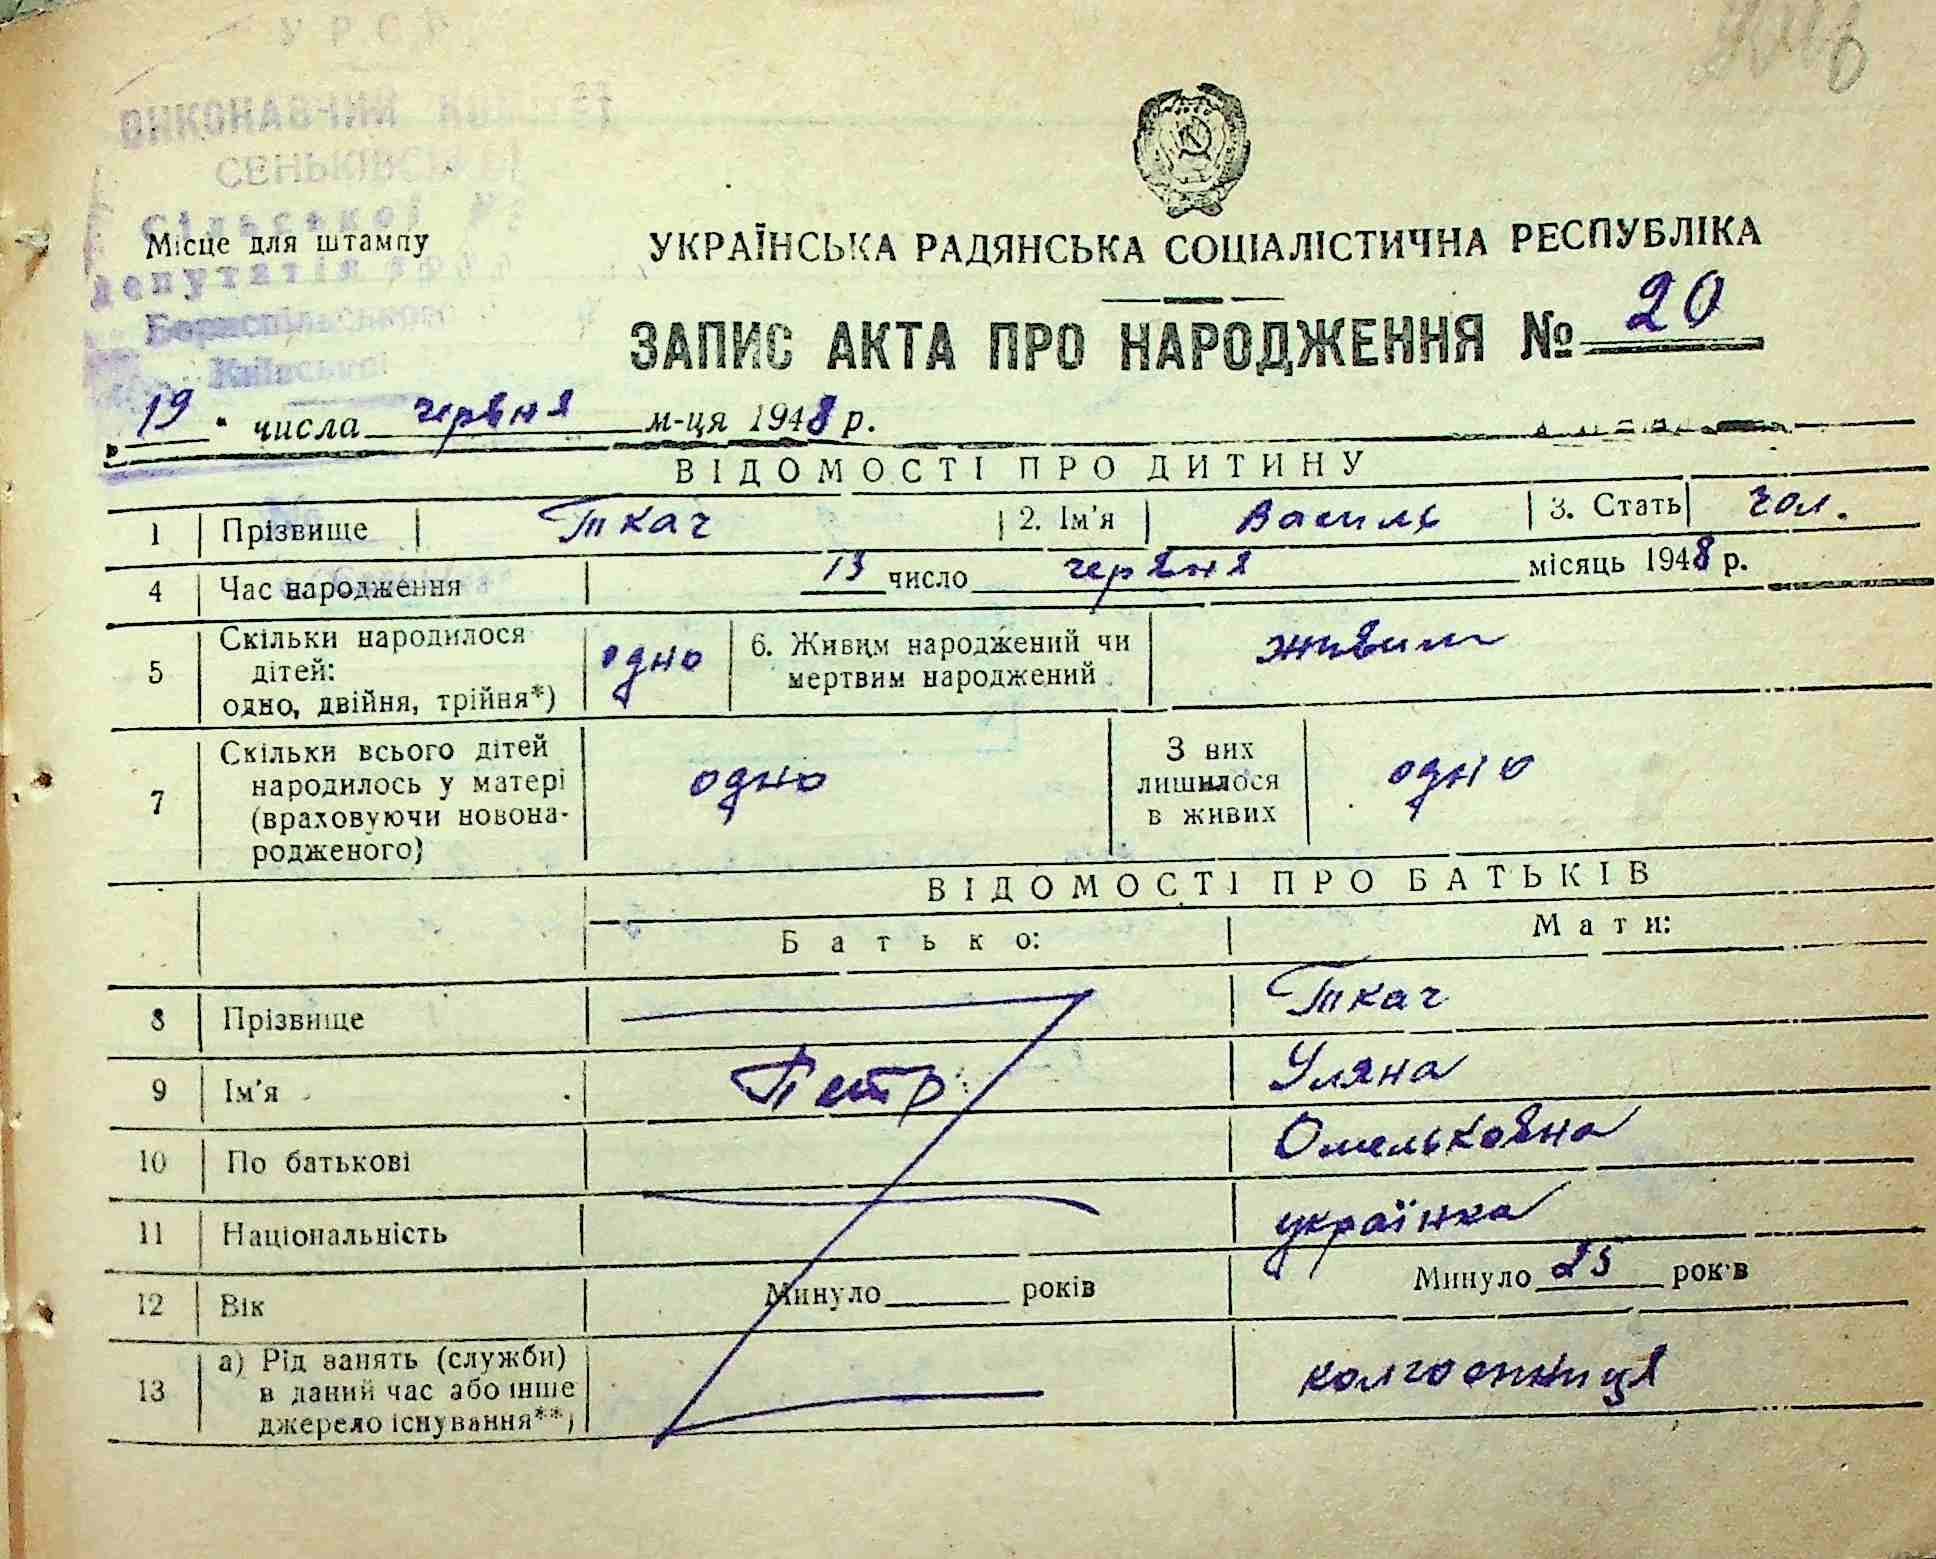 УРСР
ВИКОНАВЧИЙ КОМІТЕТ
СЕНЬКІВСЬКОЇ
Сільської
Місце для штампу
депутатів
Бориспільського
Київської
УКРАЇНСЬКА РАДЯНСЬКА СОЦІАЛІСТИЧНА РЕСПУБЛІКА
ЗАПИС АКТА ПРО НАРОДЖЕННЯ № 20
„19" числа червня м-ця 1948 р.
ВІДОМОСТІ ПРО ДИТИНУ
1 Прізвище Ткач 2. Ім'я Василь 3. Стать чол.
4 Час народження 13 число червня місяць 1948 р.
5 Скільки народилося дітей: одно, двійня, трійня*) одно 6. Живим народжений чи мертвим народжений живим
7 Скільки всього дітей народилось у матері (враховуючи новонародженого) одно З них лишилося в живих одно
ВІДОМОСТІ ПРО БАТЬКІВ
Батько: Мати:
8 Прізвище Ткач
9 Ім'я Петр Уляна
10 По батькові Омельковна
11 Національність українка
12 Вік Минуло років Минуло 23 років
13 а) Рід занять (служби) в даний час або інше джерело існування**) колгоспниця